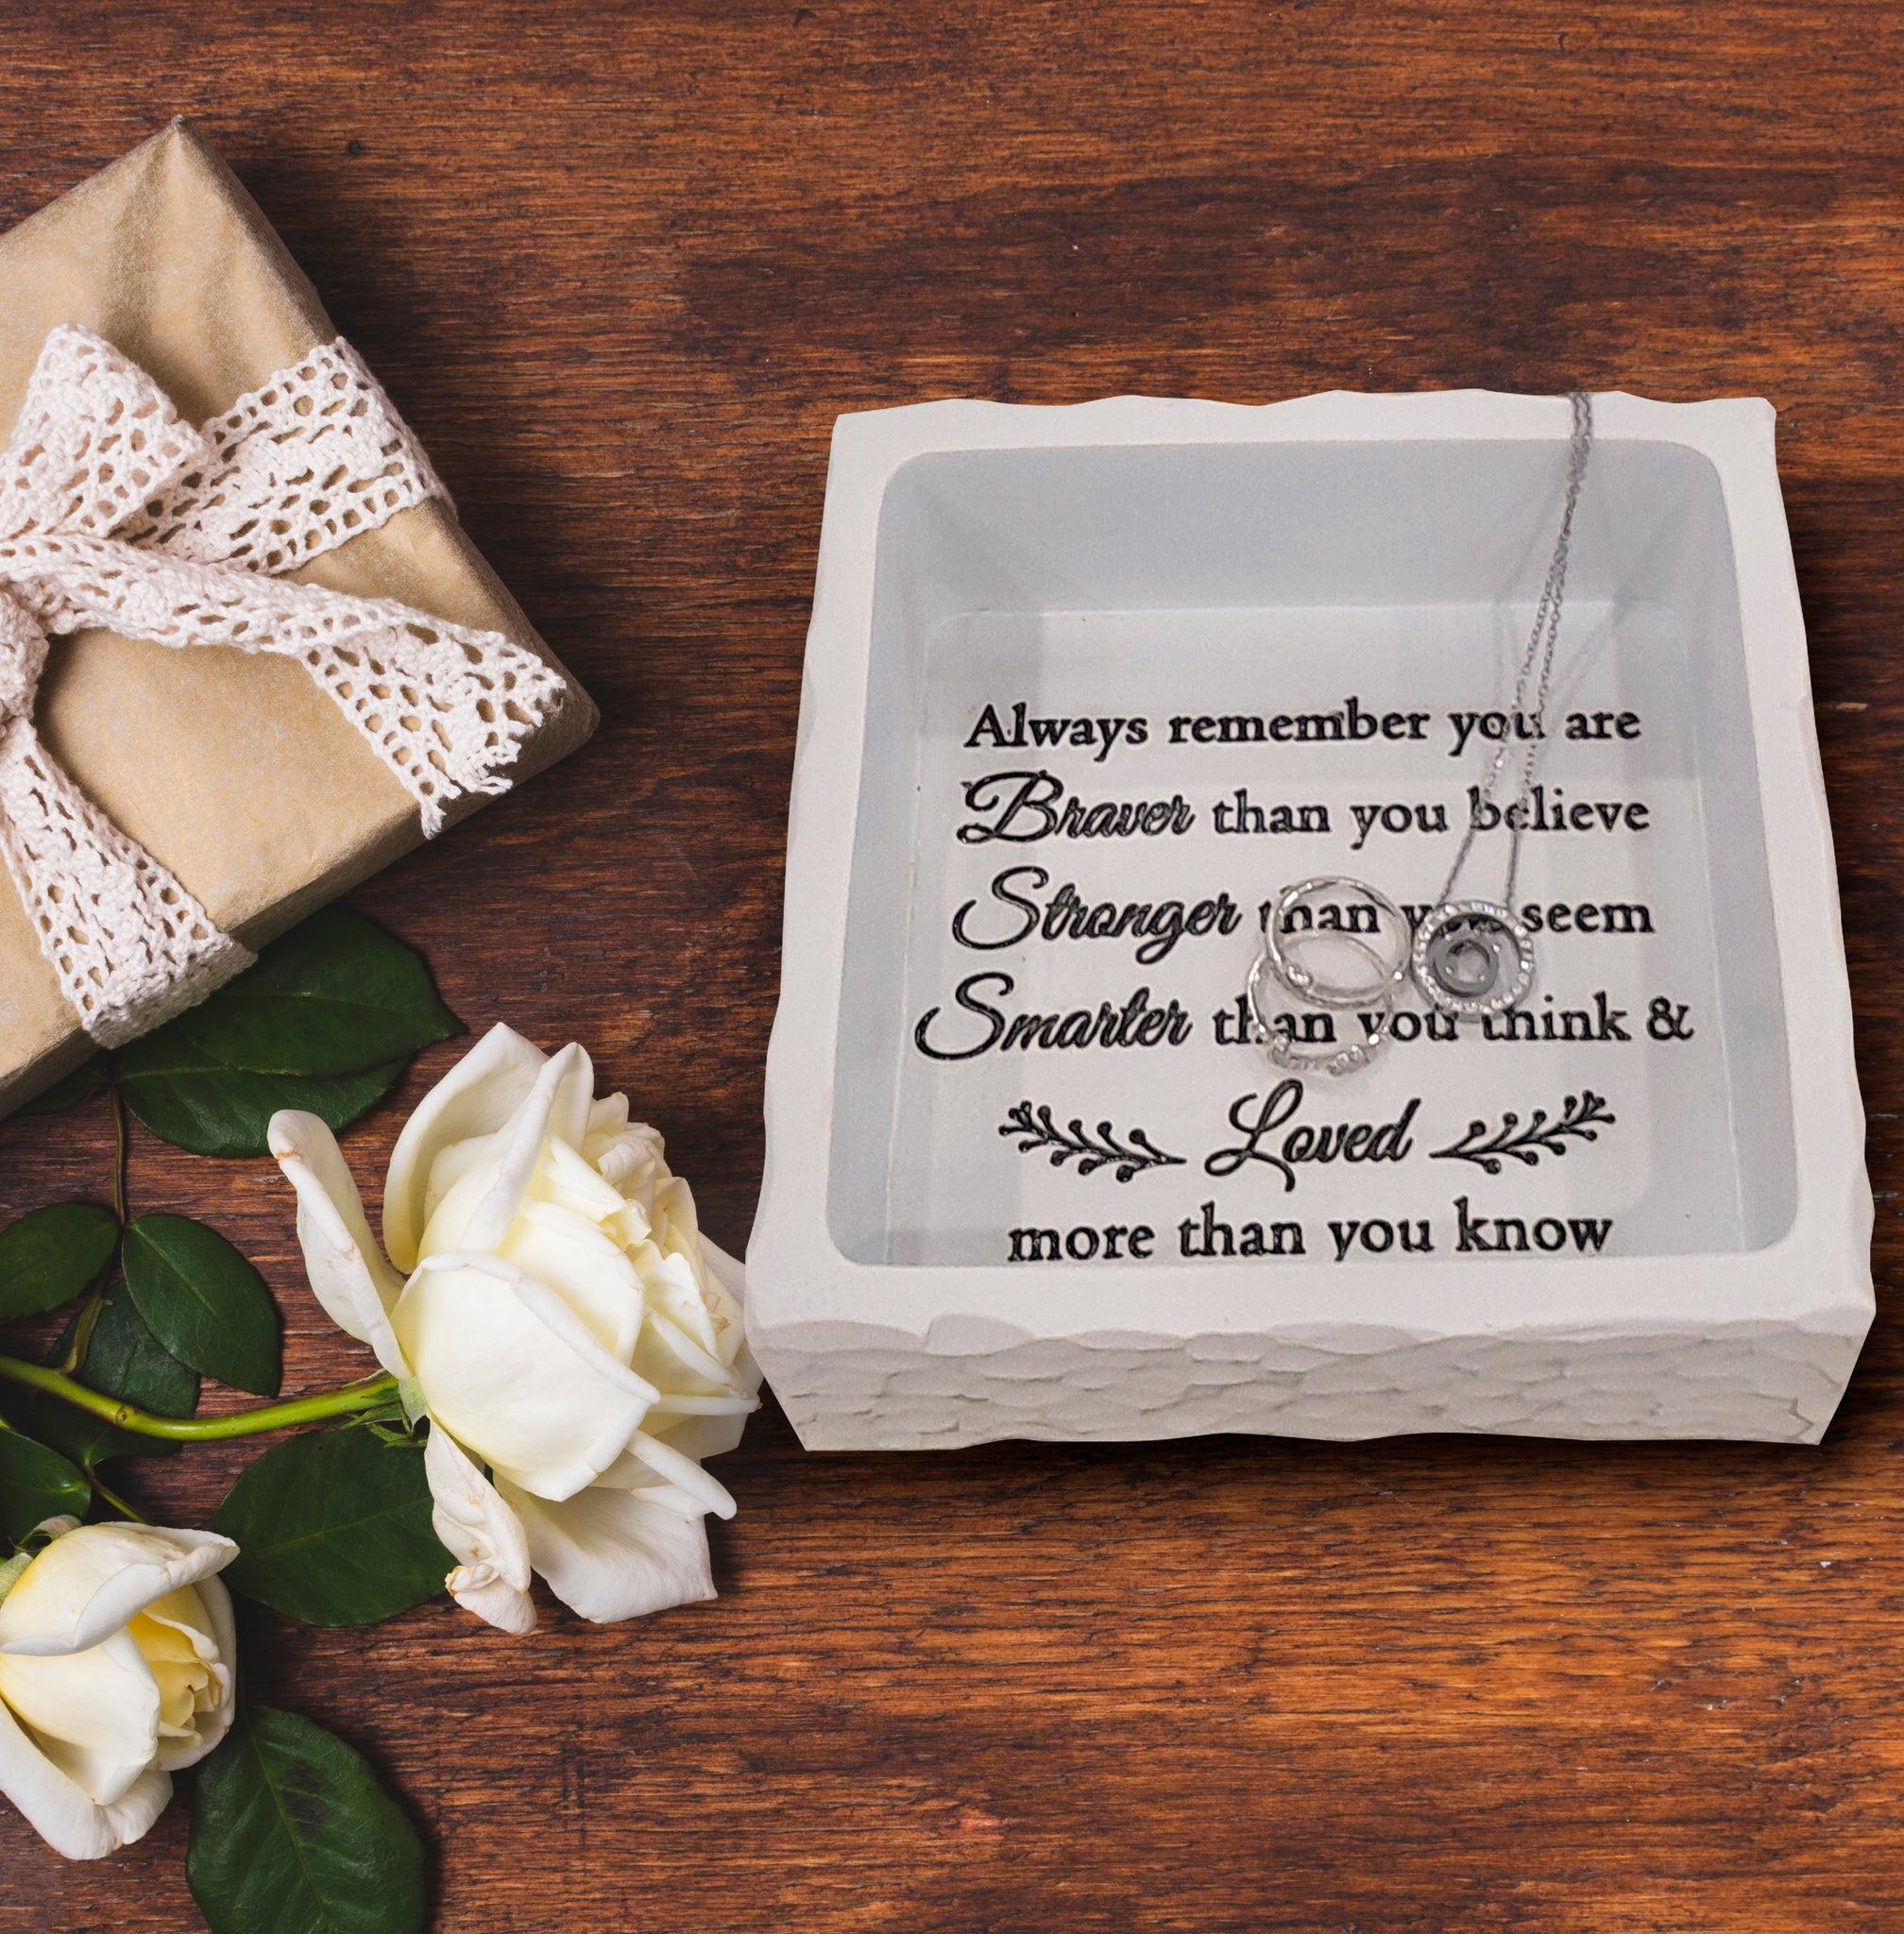 Always remember you are
Braver than you believe
Stronger than you seem
Smarter than you think &
Loved
more than you know